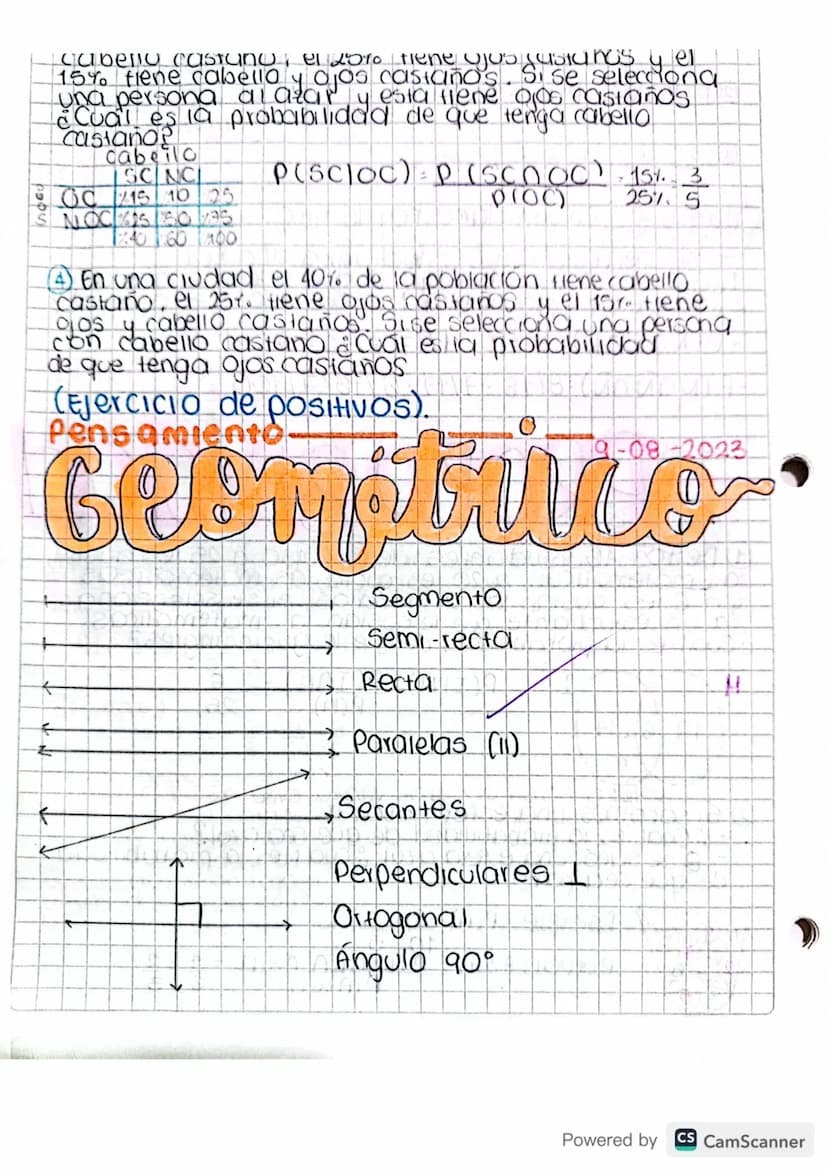 cabello castaño, el 25% tiene ojos castaños y el
15% tiene cabello y ojos castaños. Si se selecciona
una persona al azar y esta tiene ojos castaños
¿Cuál es la probabilidad de que tenga cabello
castaño?
cabello
SC NC
ojos
OC %15 10 25
NOC %25 %50 %75
%40 60 100
P(SC|OC) = P(SC∩OC) / P(OC) = 15% / 25% = 3/5
④ En una ciudad el 40% de la población tiene cabello
castaño, el 25% tiene ojos castaños y el 15% tiene
ojos y cabello castaños. Si se selecciona una persona
con cabello castano ¿Cuál es la probabilidad
de que tenga ojos castaños
(Ejercicio de positivos).
Pensamiento
9-08-2023
Geométrico
Segmento
Semi-recta
Recta
Paralelas (II)
Secantes
Perpendiculares ⊥
Ortogonal
Ángulo 90°
Powered by CS CamScanner